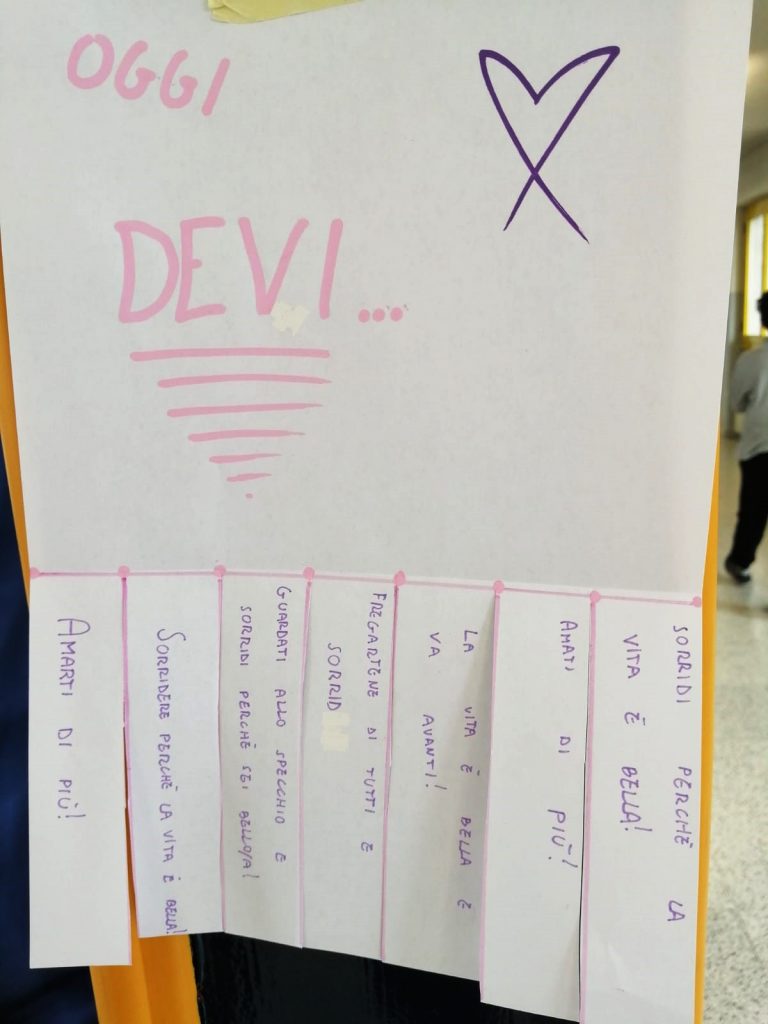 OGGI
DEVI...
AMARTI DI PIÙ!
SORRIDERE PERCHÈ LA VITA È BELLA!
GUARDATI ALLO SPECCHIO E
SORRIDI PERCHÈ SEI BELLO/A!
FREGARTENE DI TUTTI E
SORRID
LA VITA È BELLA E
VA AVANTI!
AMATI DI PIÙ!
SORRIDI PERCHÈ LA
VITA È BELLA!